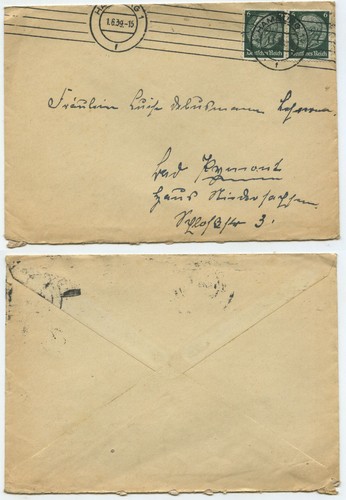 1.6.39.-15
1
6 6
Deutsches Reich Deutsches Reich
Fräulein Luise
Bad Pyrmont
Haus Niedersachsen
Schloßstr 3.